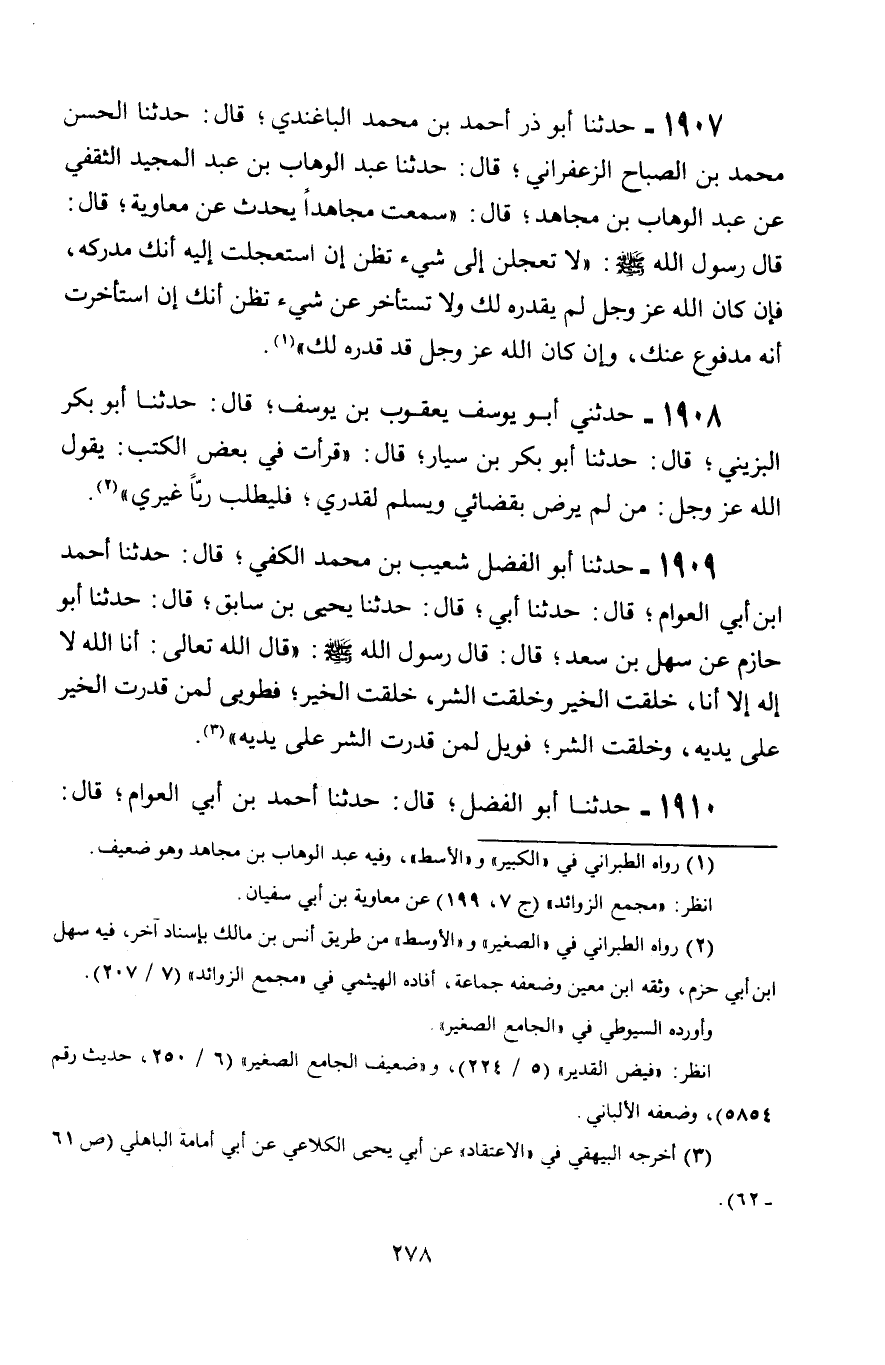 ١٩٠٧ ـ حدثنا أبو ذر أحمد بن محمد الباغندي ؛ قال : حدثنا الحسن
محمد بن الصباح الزعفراني ؛ قال : حدثنا عبد الوهاب بن عبد المجيد الثقفي
عن عبد الوهاب بن مجاهد ؛ قال : «سمعت مجاهداً يحدث عن معاوية ؛ قال :
قال رسول الله ﷺ : «لا تعجلن إلى شيء تظن إن استعجلت إليه أنك مدركه ،
فإن كان الله عز وجل لم يقدره لك ولا تستأخر عن شيء تظن أنك إن استأخرت
أنه مدفوع عنك ، وإن كان الله عز وجل قد قدره لك»(١) .
١٩٠٨ ـ حدثني أبو يوسف يعقوب بن يوسف ؛ قال : حدثنا أبو بكر
البزيني ؛ قال : حدثنا أبو بكر بن سيار ؛ قال : «قرأت في بعض الكتب : يقول
الله عز وجل : من لم يرض بقضائي ويسلم لقدري ؛ فليطلب ربّاً غيري»(٢) .
١٩٠٩ ـ حدثنا أبو الفضل شعيب بن محمد الكفي ؛ قال : حدثنا أحمد
ابن أبي العوام ؛ قال : حدثنا أبي ؛ قال : حدثنا يحيى بن سابق ؛ قال : حدثنا أبو
حازم عن سهل بن سعد ؛ قال : قال رسول الله ﷺ : «قال الله تعالى : أنا الله لا
إله إلا أنا ، خلقت الخير وخلقت الشر ، خلقت الخير ؛ فطوبى لمن قدرت الخير
على يديه ، وخلقت الشر ؛ فويل لمن قدرت الشر على يديه»(٣) .
١٩١٠ ـ حدثنا أبو الفضل ؛ قال : حدثنا أحمد بن أبي العوام ؛ قال :
(١) رواه الطبراني في «الكبير» و «الأسط» ، وفيه عبد الوهاب بن مجاهد وهو ضعيف .
انظر : «مجمع الزوائد» (ج ٧ ، ١٩٩) عن معاوية بن أبي سفيان .
(٢) رواه الطبراني في «الصغير» و «الأوسط» من طريق أنس بن مالك بإسناد آخر ، فيه سهل
ابن أبي حزم ، وثقه ابن معين وضعفه جماعة ، أفاده الهيثمي في «مجمع الزوائد» (٧ / ٢٠٧) .
وأورده السيوطي في «الجامع الصغير» .
انظر : «فيض القدير» (٥ / ٢٢٤) ، و «ضعيف الجامع الصغير» (٦ / ٢٥٠ ، حديث رقم
٥٨٥٤) ، وضعفه الألباني .
(٣) أخرجه البيهقي في «الاعتقاد» عن أبي يحيى الكلاعي عن أبي أمامة الباهلي (ص ٦١
ـ ٦٢) .
٢٧٨